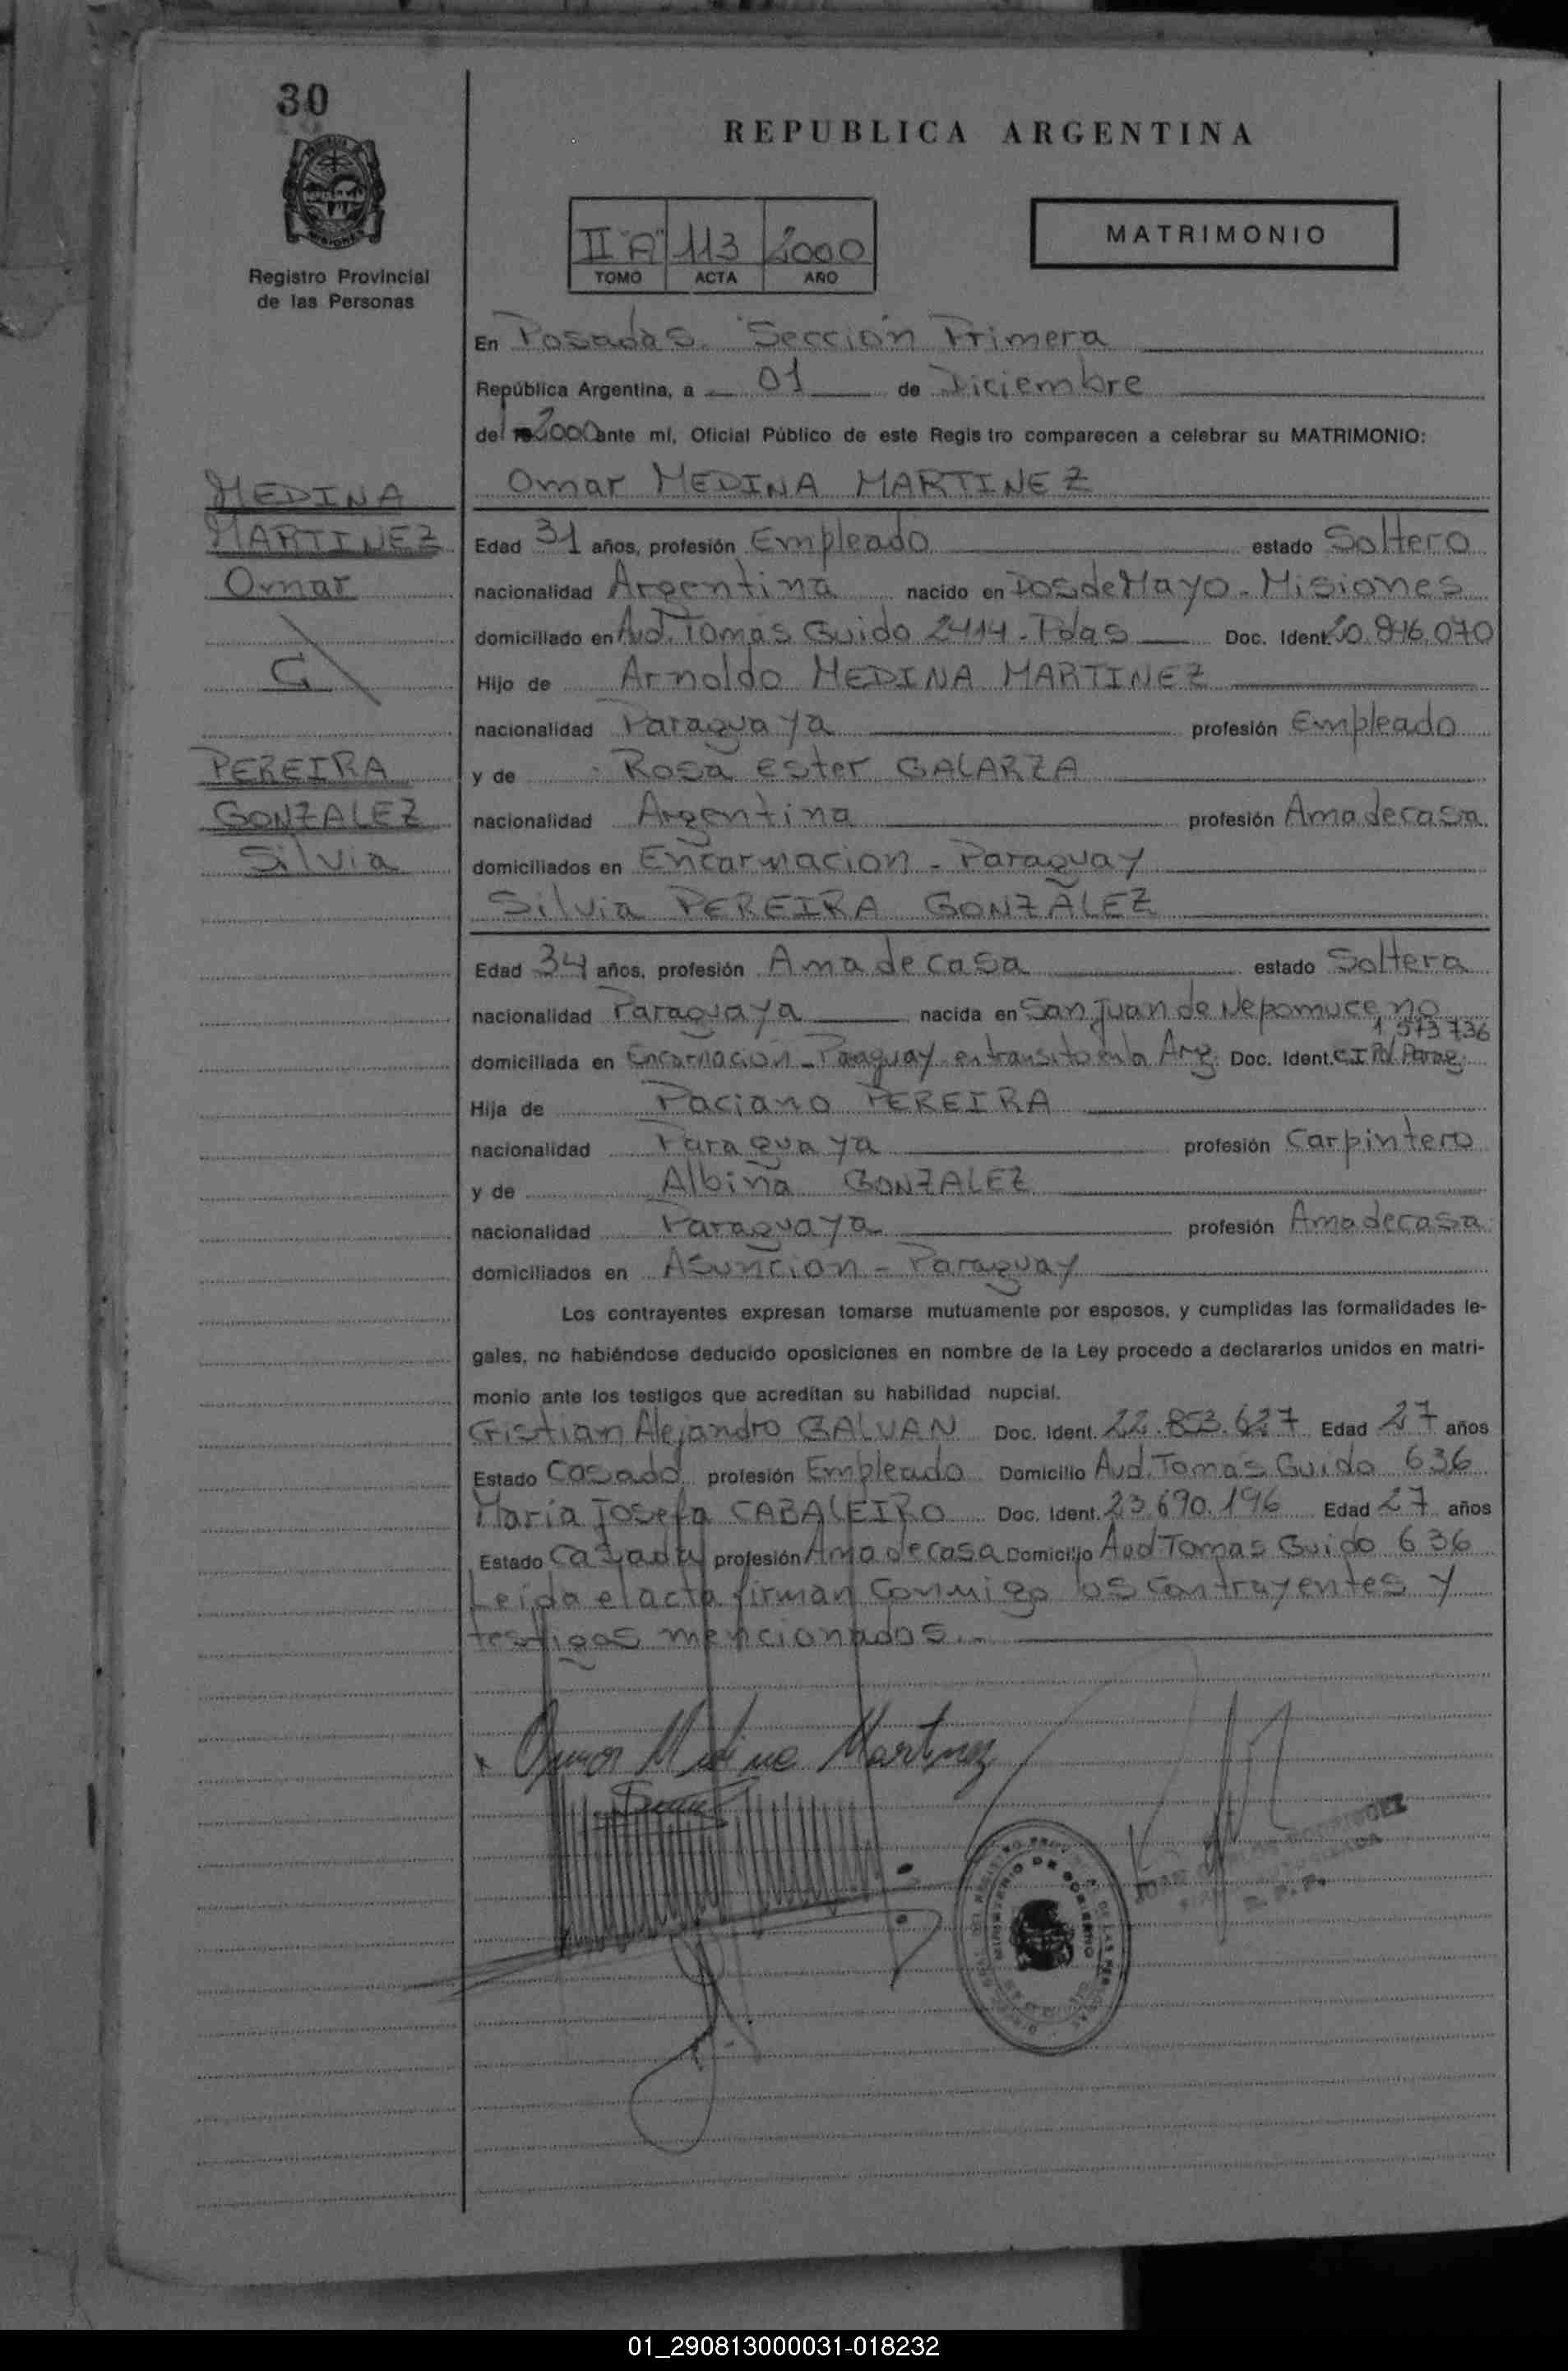 30
REPUBLICA ARGENTINA
MISIONES
Registro Provincial
de las Personas
II "A" 113 2000
TOMO ACTA AÑO
MATRIMONIO
En Posadas. Sección Primera
República Argentina, a 01 de Diciembre
del 2000 ante mí, Oficial Público de este Regis tro comparecen a celebrar su MATRIMONIO:
MEDINA
MARTINEZ
Omar
y
G
PEREIRA
GONZALEZ
Silvia
Omar MEDINA MARTINEZ
Edad 31 años, profesión Empleado estado Soltero
nacionalidad Argentina nacido en Dos de Mayo - Misiones
domiciliado en Avd. Tomás Guido 2414 - Pdas Doc. Ident. 20.846.070
Hijo de Arnoldo MEDINA MARTINEZ
nacionalidad Paraguaya profesión Empleado
y de Rosa ester GALARZA
nacionalidad Argentina profesión Ama de casa
domiciliados en Encarnacion - Paraguay
Silvia PEREIRA GONZÁLEZ
Edad 34 años, profesión Ama de casa estado Soltera
nacionalidad Paraguaya nacida en San Juan de Nepomuceno
1 573736
domiciliada en Encarnación - Paraguay en transito en la Arg. Doc. Ident. C I Pol Parag.
Hija de Paciano PEREIRA
nacionalidad Paraguaya profesión Carpintero
y de Albina GONZALEZ
nacionalidad Paraguaya profesión Ama de casa
domiciliados en Asuncion - Paraguay
Los contrayentes expresan tomarse mutuamente por esposos, y cumplidas las formalidades le-
gales, no habiéndose deducido oposiciones en nombre de la Ley procedo a declararlos unidos en matri-
monio ante los testigos que acreditan su habilidad nupcial.
Cristian Alejandro GALVAN Doc. Ident. 22.853.627 Edad 27 años
Estado Casado profesión Empleado Domicilio Avd. Tomas Guido 636
María Josefa CABALEIRO Doc. Ident. 23.690.196 Edad 27 años
Estado Casada profesión Ama de casa Domicilio Avd Tomas Guido 636
Leída el acta firman conmigo los contrayentes y
testigos mencionados.-
Omar Medina Martinez
MINISTERIO DE GOBIERNO
JUAN CARLOS RODRIGUEZ
R. P. P.
01_290813000031-018232